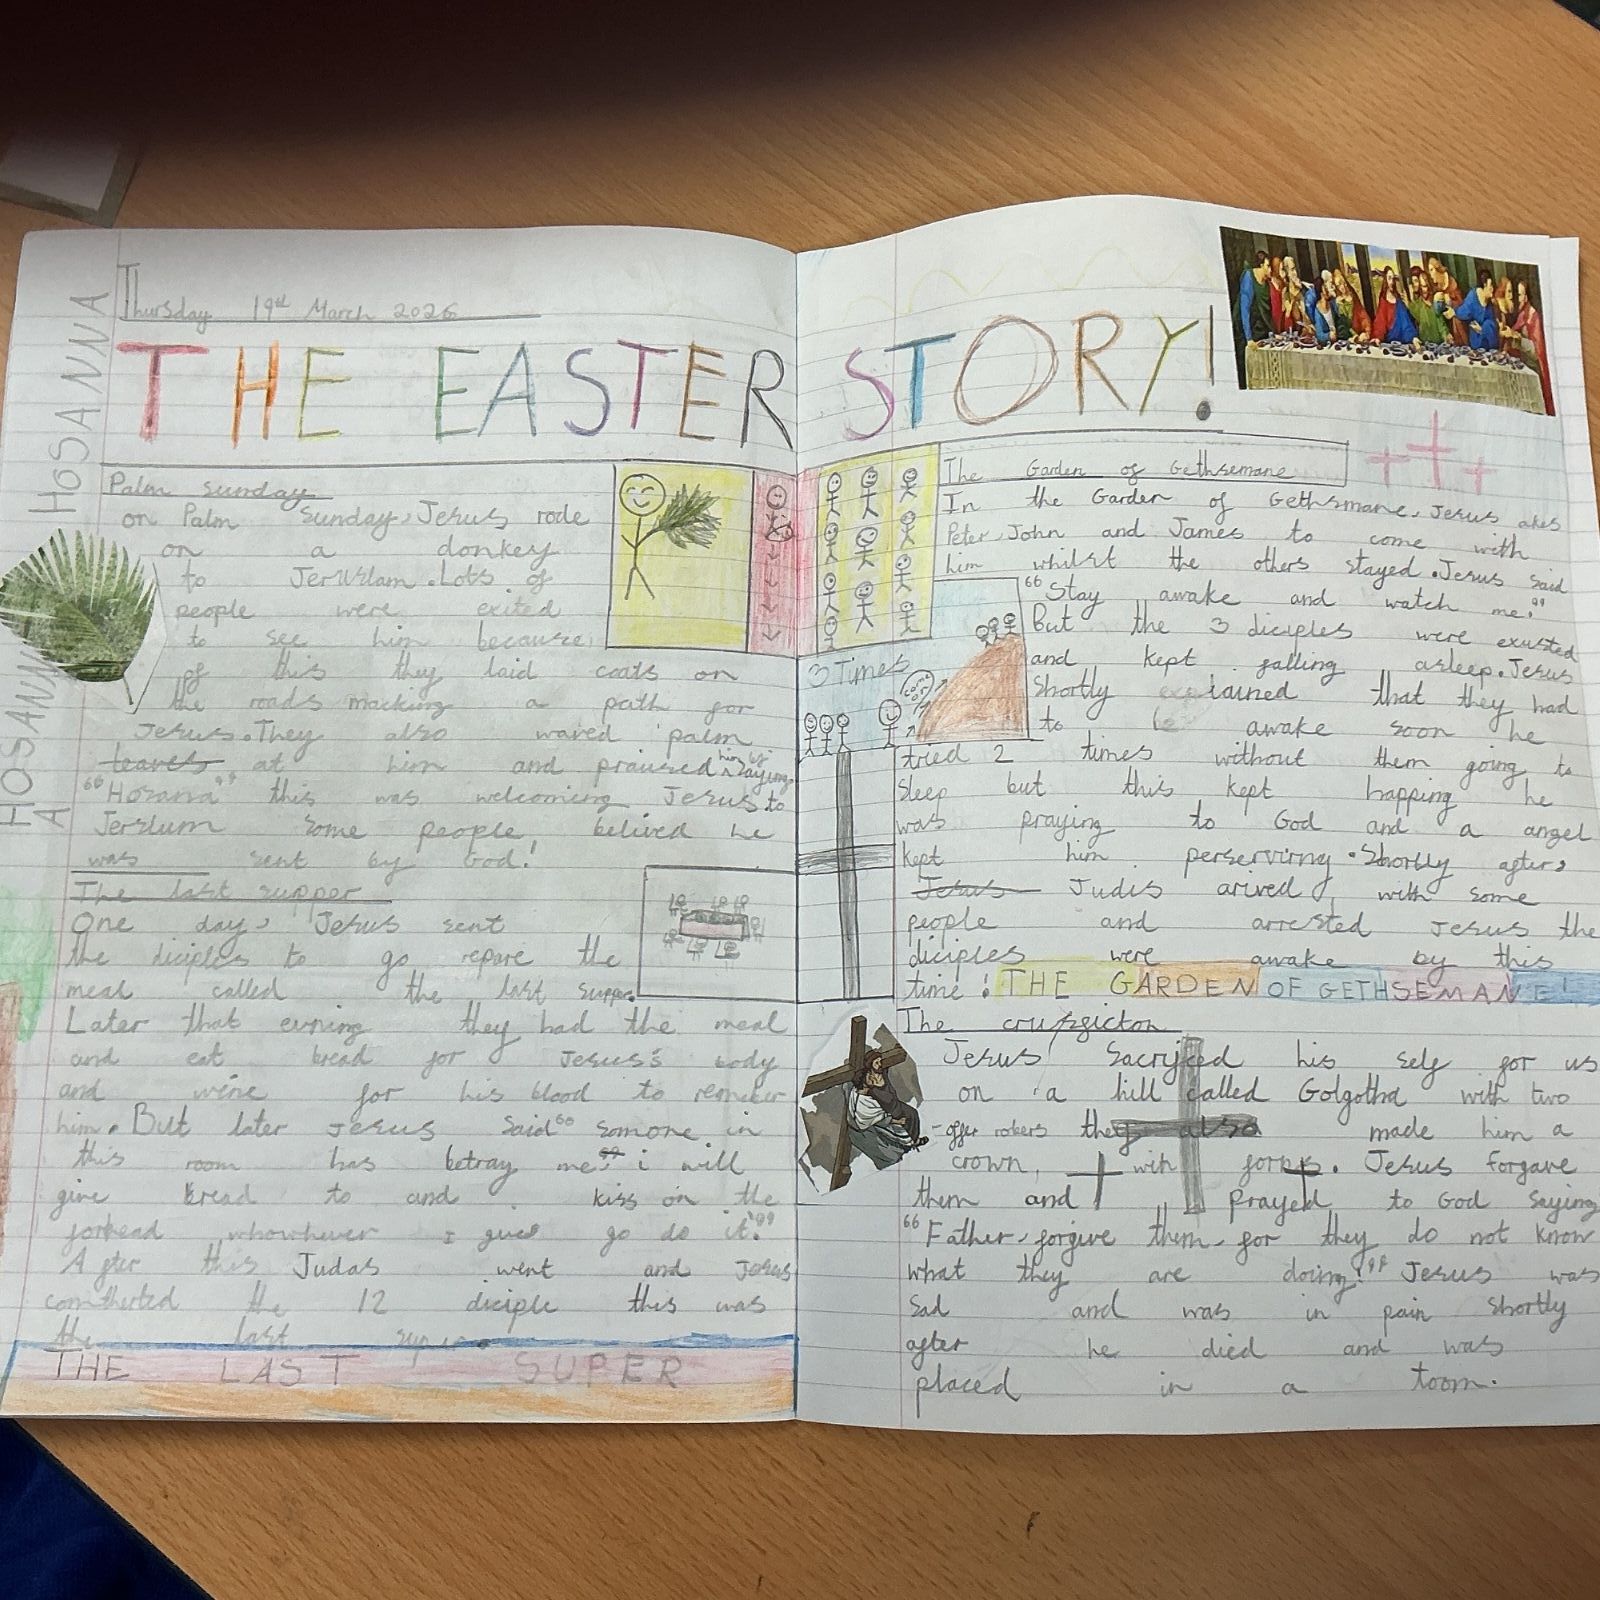 Thursday 19st March 2026
THE EASTER STORY!
HOSANNA
HOSANNA
HOSANN
A
Palm sunday
on Palm Sunday, Jerus rode
on a donkey
to Jeruslam. Lots of
people were exited
to see him because
of this they laid coats on
the roads macking a path for
Jesus. They also waved palm
leaves at him and praised him by saying
"Hosana" this was welcoming Jesus to
Jerslum some people belived he
was sent by God!
The last supper
One day, Jesus sent
the diciples to go repare the
meal called the last supper.
Later that evning they had the meal
and eat bread for Jesus's body
and wine for his blood to
him. But later Jesus said "somone in
this room has betray me" i will
give bread to and kiss on the
forhead whowhever I give go do it."
After this Judas went and Jesus
the 12 diciple this was
the last super.
THE LAST SUPER
The Garden of Gethsemane
In the Garden of Gethsmane, Jesus akes
Peter, John and James to come with
him whilst the others stayed. Jesus said
"Stay awake and watch me."
But the 3 diciples were exusted
and kept falling asleep. Jesus
shortly that they had
to be awake soon he
tried 2 times without them going to
sleep but this kept happing he
was praying to God and a angel
kept him perservirng. Shortly after,
Jesus Judis arived with some
people and arrested Jesus the
diciples were awake by this
time!
3 Times
come on
THE GARDEN OF GETHSEMANE!
The
Jesus Sacrifced his self for us
on a hill called Golgotha with two
offer robers they also made him a
crown, with Jesus forgave
them and prayed to God saying
"Father, forgive them, for they do not know
what they are doing!" Jesus was
sad and was in pain shortly
after he died and was
placed in a toom.